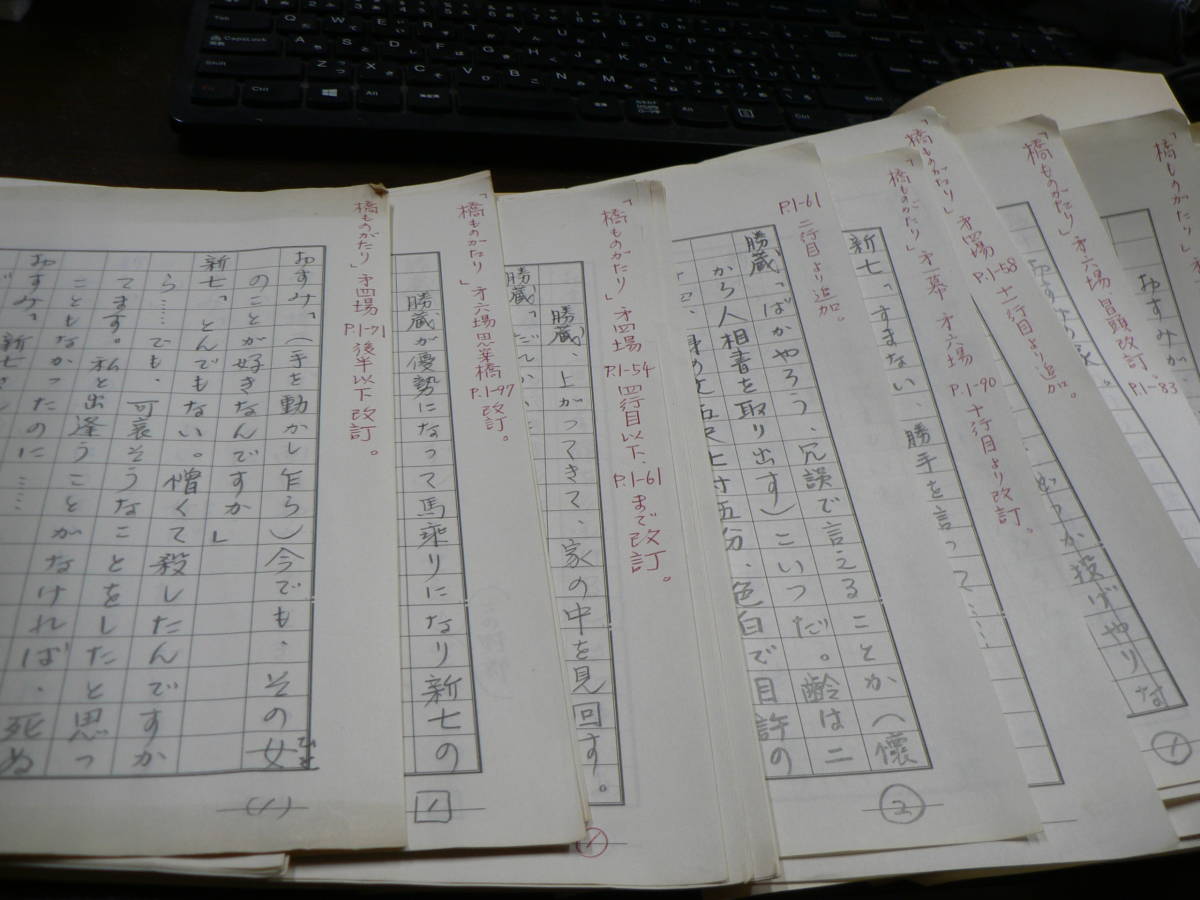 「橋ものがたり」
㐧六場 冒頭改訂。
P.1-83
おすみが、
「橋ものがたり」㐧四場
P.1-58 十一行目より追加。
投げやりな
①
「橋ものがたり」㐧一幕 㐧六場 P.1-90 十行目より改訂。
新七「すまない、勝手を言って……
P.1-61 二行目より追加。
勝蔵「ばかやろう、冗談で言えることか（懐
から人相書を取り出す）こいつだ。齢は二
五尺七寸五分、色白で目許の
②
「橋ものがたり」㐧四場 P.1-54 四行目以下、P.1-61まで改訂。
勝蔵、上がってきて、家の中を見回す。
勝蔵「だれか
①
「橋ものがたり」㐧六場 思案橋 P.1-97 改訂。
勝蔵が優勢になって馬乗りになり新七の
1
「橋ものがたり」㐧四場 P.1-71 後半以下改訂。
おすみ「（手を動かし乍ら）今でも、その女
ひと
のことが好きなんですか」
新七「とんでもない。憎くて殺したんですか
ら……でも、可哀そうなことをしたと思っ
てます。私と出逢うことがなければ、死ぬ
こともなかったのに……
おすみ「新七さ
(1)
Tab
Caps Lock
Shift
Ctrl
Alt
Q W E R T Y U I O P
A S D F G H J K L
Z X C V B N M